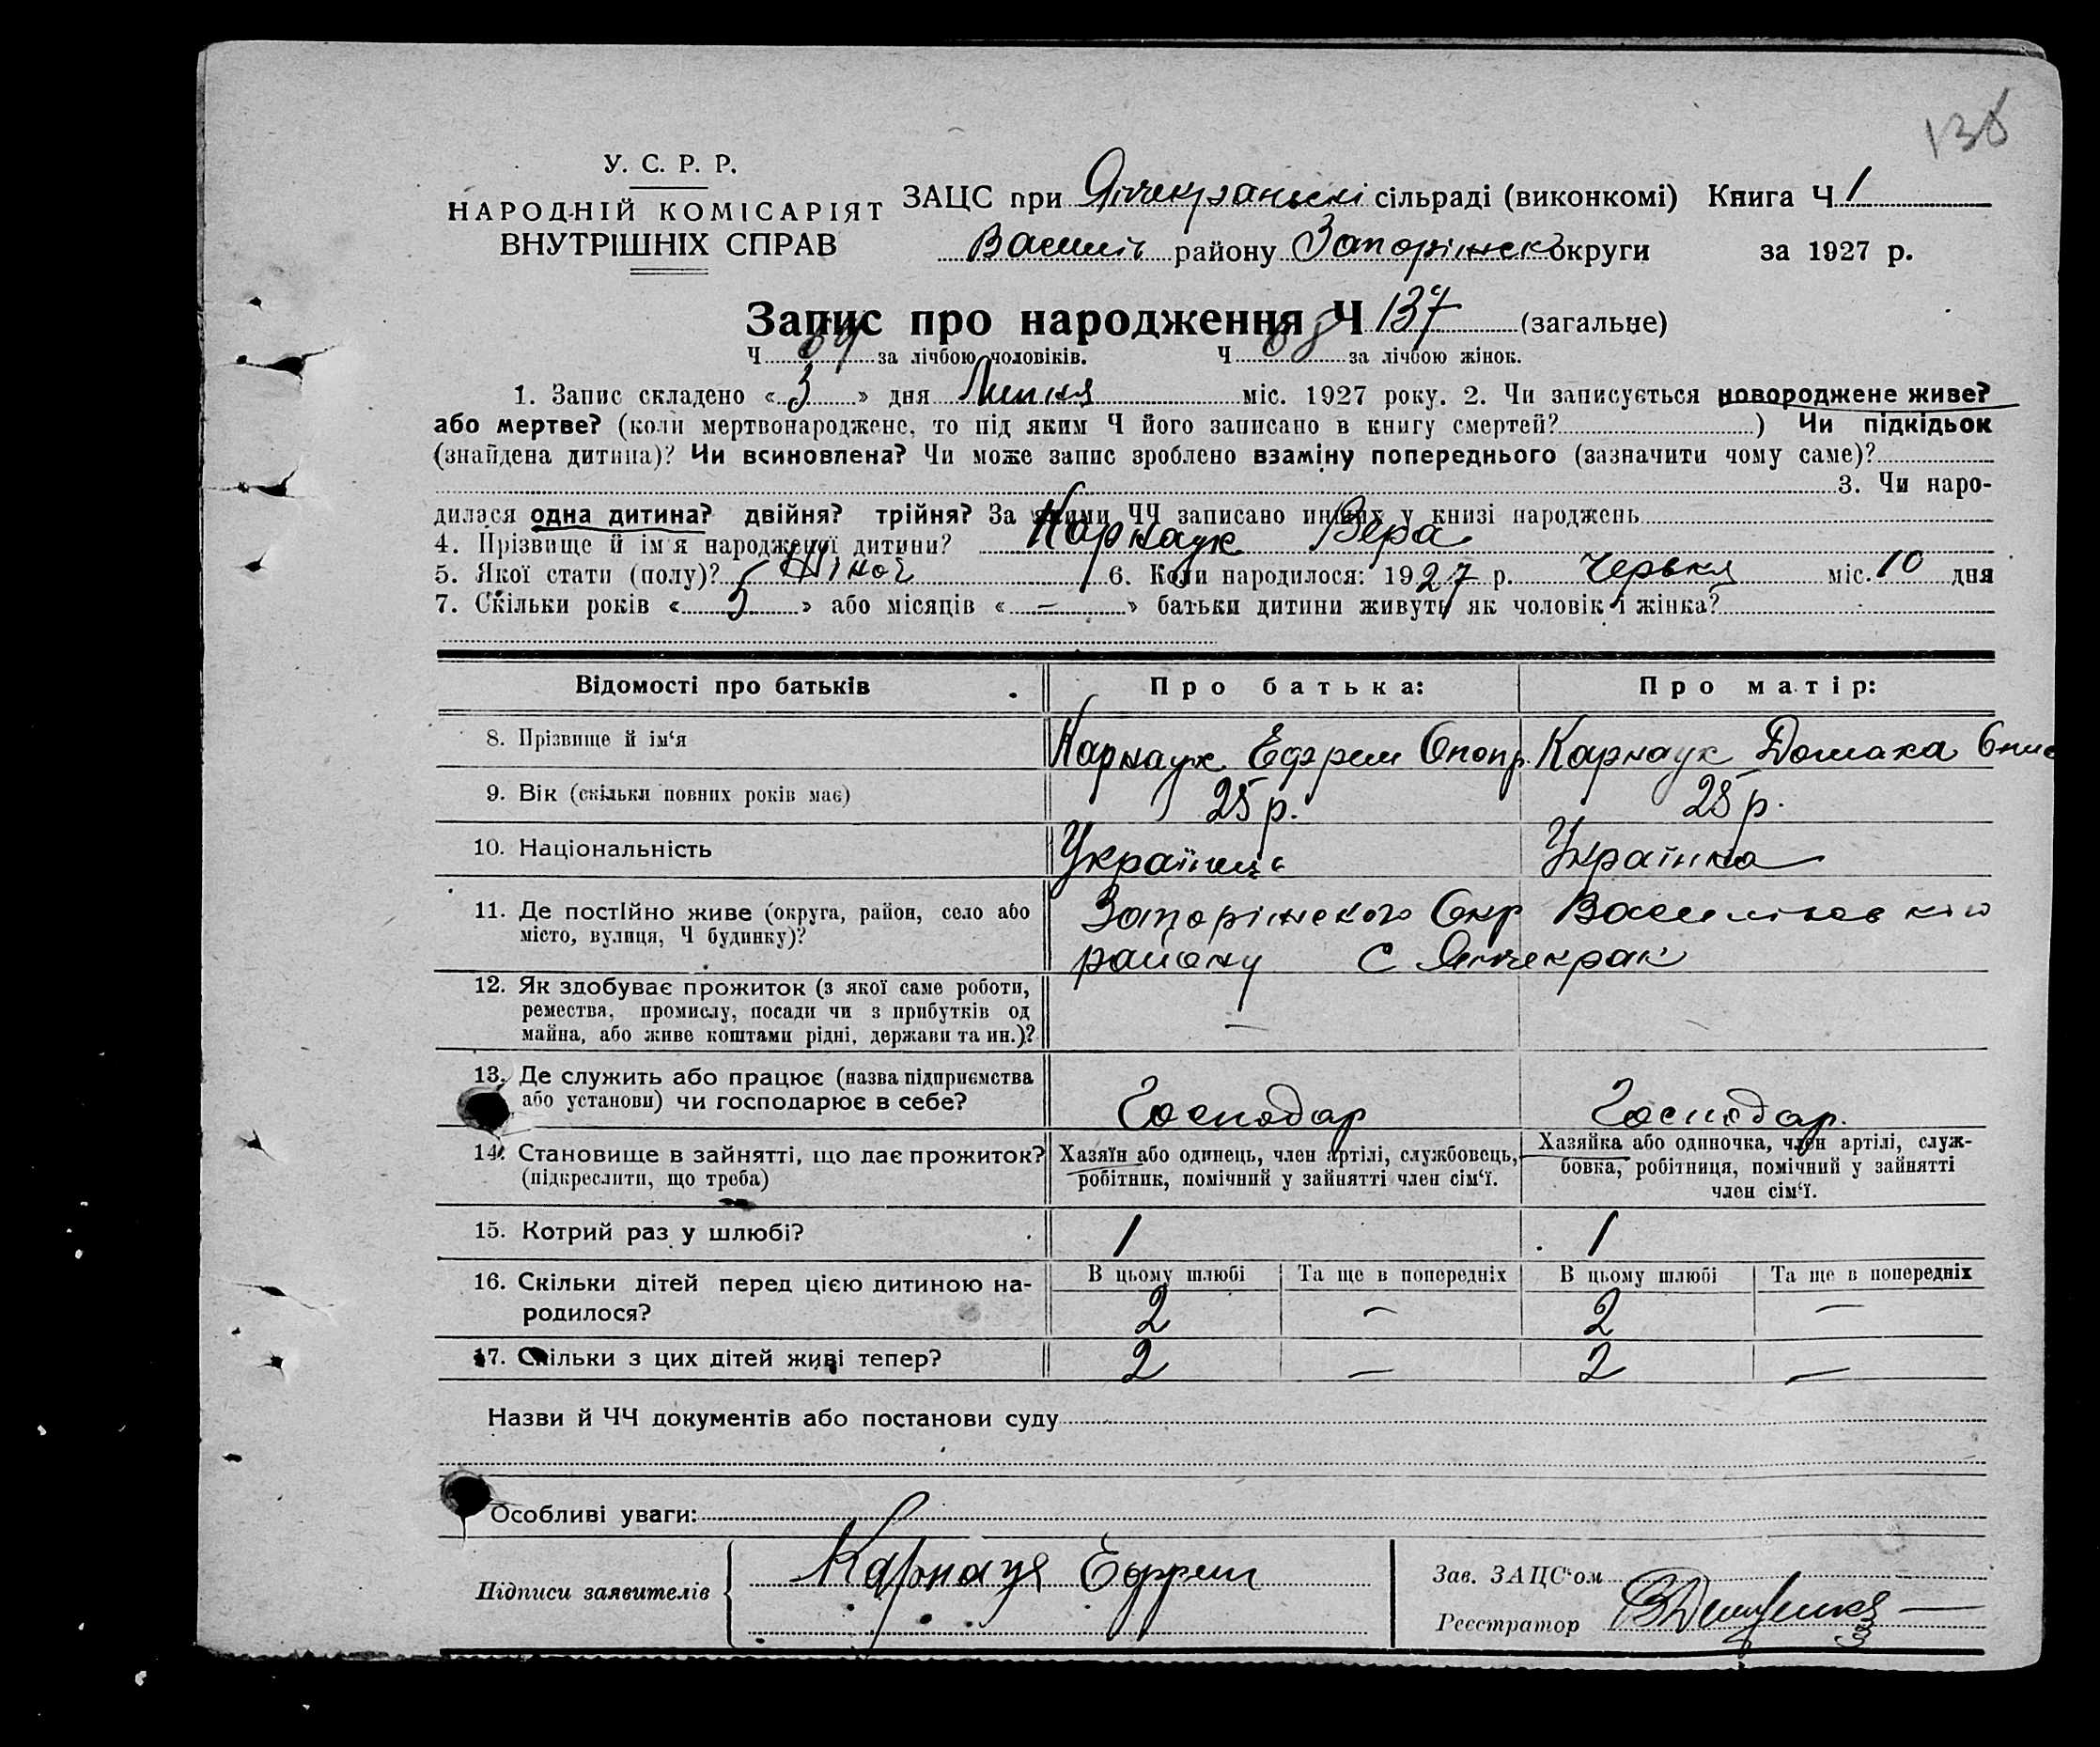 138
У. С. Р. Р.
НАРОДНІЙ КОМІСАРІЯТ
ВНУТРІШНІХ СПРАВ
ЗАЦС при Янчекранські сільраді (виконкомі) Книга Ч 1
Василів району Запоріжськ округи за 1927 р.
Запис про народження Ч 137 (загальне)
Ч 69 за лічбою чоловіків. Ч 68 за лічбою жінок.
1. Запис складено « 3 » дня Липня міс. 1927 року. 2. Чи записується новороджене живе?
або мертве? (коли мертвонароджене, то під яким Ч його записано в книгу смертей? ) Чи підкідьок
(знайдена дитина)? Чи всиновлена? Чи може запис зроблено взаміну попереднього (зазначити чому саме)?
3. Чи наро-
дилася одна дитина? двійня? трійня? За якими ЧЧ записано инших у книзі народжень
4. Прізвище й ім'я народженої дитини? Карнаух Вера
5. Якої стати (полу)? Жіноч 6. Коли народилося: 1927 р. Червня міс. 10 дня
7. Скільки років « 5 » або місяців « — » батьки дитини живуть як чоловік і жінка?
Відомості про батьків Про батька: Про матір:
8. Прізвище й ім‘я Карнаух Ефрем Карнаук Домаха
9. Вік (скільки повних років має) 25 р. 25 р.
10. Національність Українець Українка
11. Де постійно живе (округа, район, село або Запоріжского Окр Василівского
місто, вулиця, Ч будинку)? району С Янчекрак
12. Як здобуває прожиток (з якої саме роботи,
ремества, промислу, посади чи з прибутків од
майна, або живе коштами рідні, держави та ин.)? —
13. Де служить або працює (назва підприємства
або установи) чи господарює в себе? Господар Господар.
14. Становище в зайнятті, що дає прожиток? Хазяїн або одинець, член артілі, службовець, Хазяйка або одиночка, член артілі, служ-
(підкреслити, що треба) робітник, помічний у зайнятті член сім‘ї. бовка, робітниця, помічний у зайнятті
член сім‘ї.
15. Котрий раз у шлюбі? 1 1
16. Скільки дітей перед цією дитиною на- В цьому шлюбі Та ще в попередніх В цьому шлюбі Та ще в попередніх
родилося? 2 — 2 —
17. Скільки з цих дітей живі тепер? 2 — 2 —
Назви й ЧЧ документів або постанови суду
Особливі уваги:
Підписи заявителів Карнаух Ефрем
Зав. ЗАЦС‘ом
Реєстратор